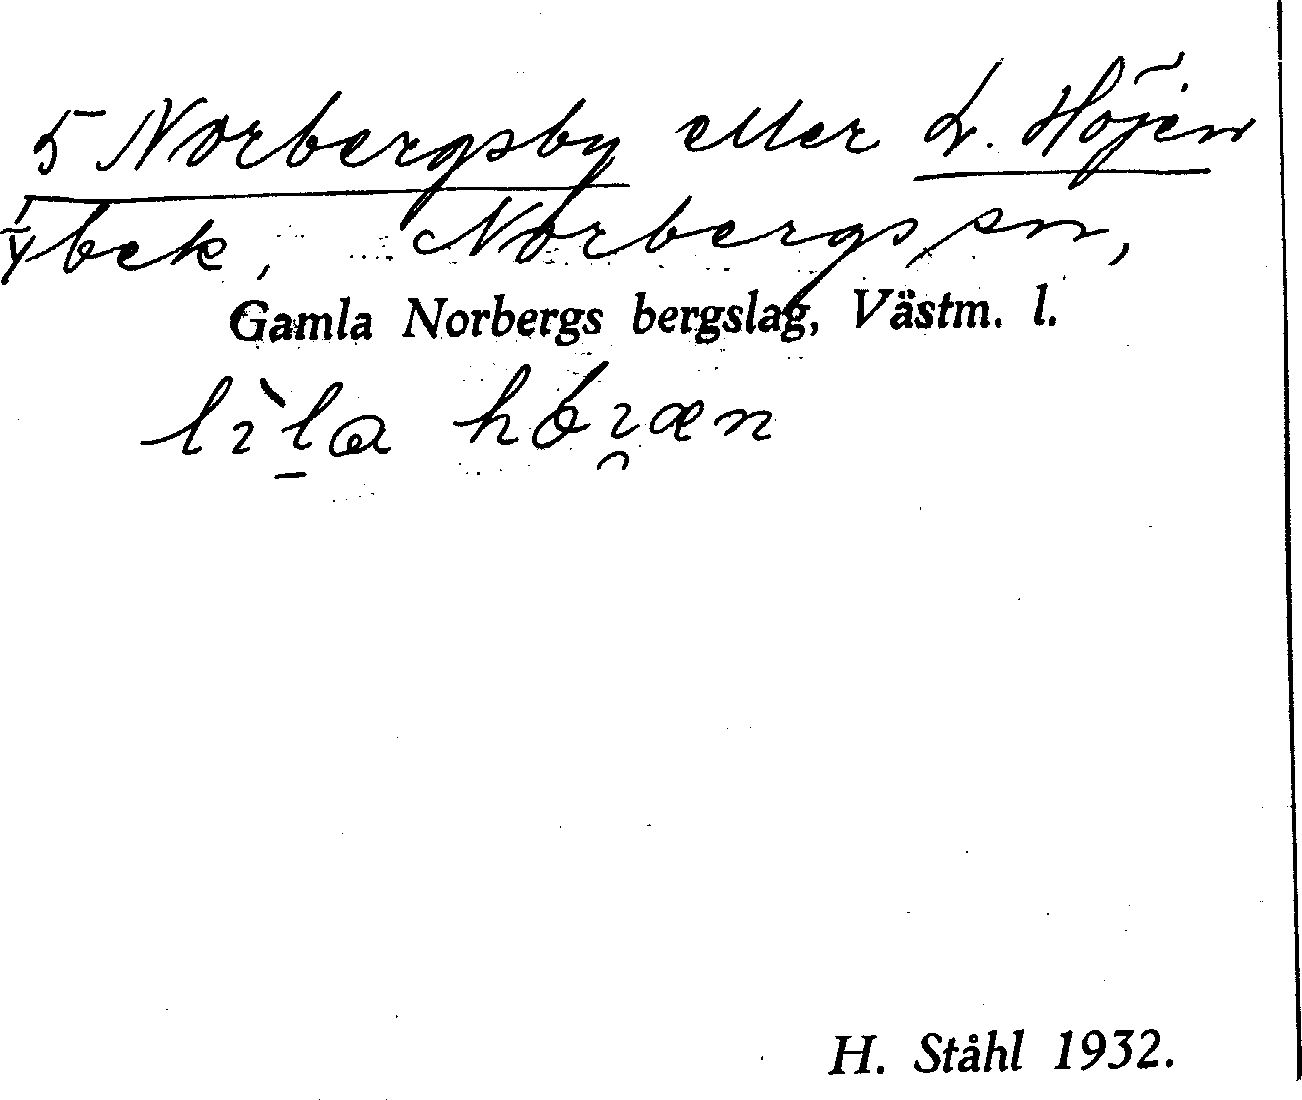 5 Norbergsby eller L. Höjen
1/4 bek, Norbergs sn,
Gamla Norbergs bergslag, Västm. l.
lìla hö́i̯æn
H. Ståhl 1932.